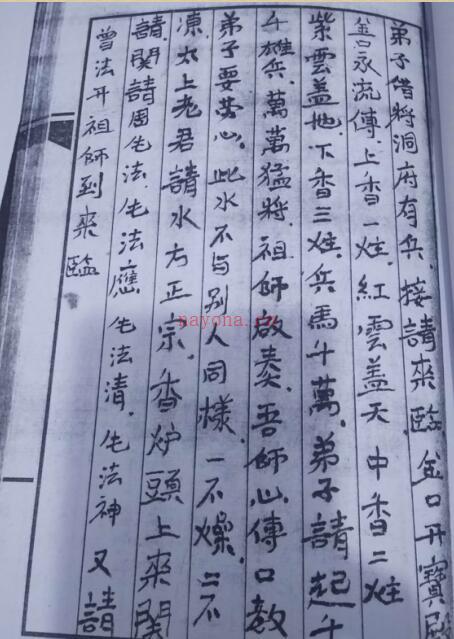 弟子借将洞府有兵、接請来臨、金口开寶殿
金口永流傳、上香一炷、紅雲盖天 中香二炷
紫雲盖地、下香三炷、兵馬千萬、弟子請起千
千雄兵、萬萬猛将、祖師啟奏、吾師心傳口教
弟子要劳心、此水不与别人同樣、一不燥、二不
凍、太上老君請水方正宗、香炉頭上来関
請、関請周法、法應 法清、法神 又請
曾法开祖師到来臨
nayona.cn